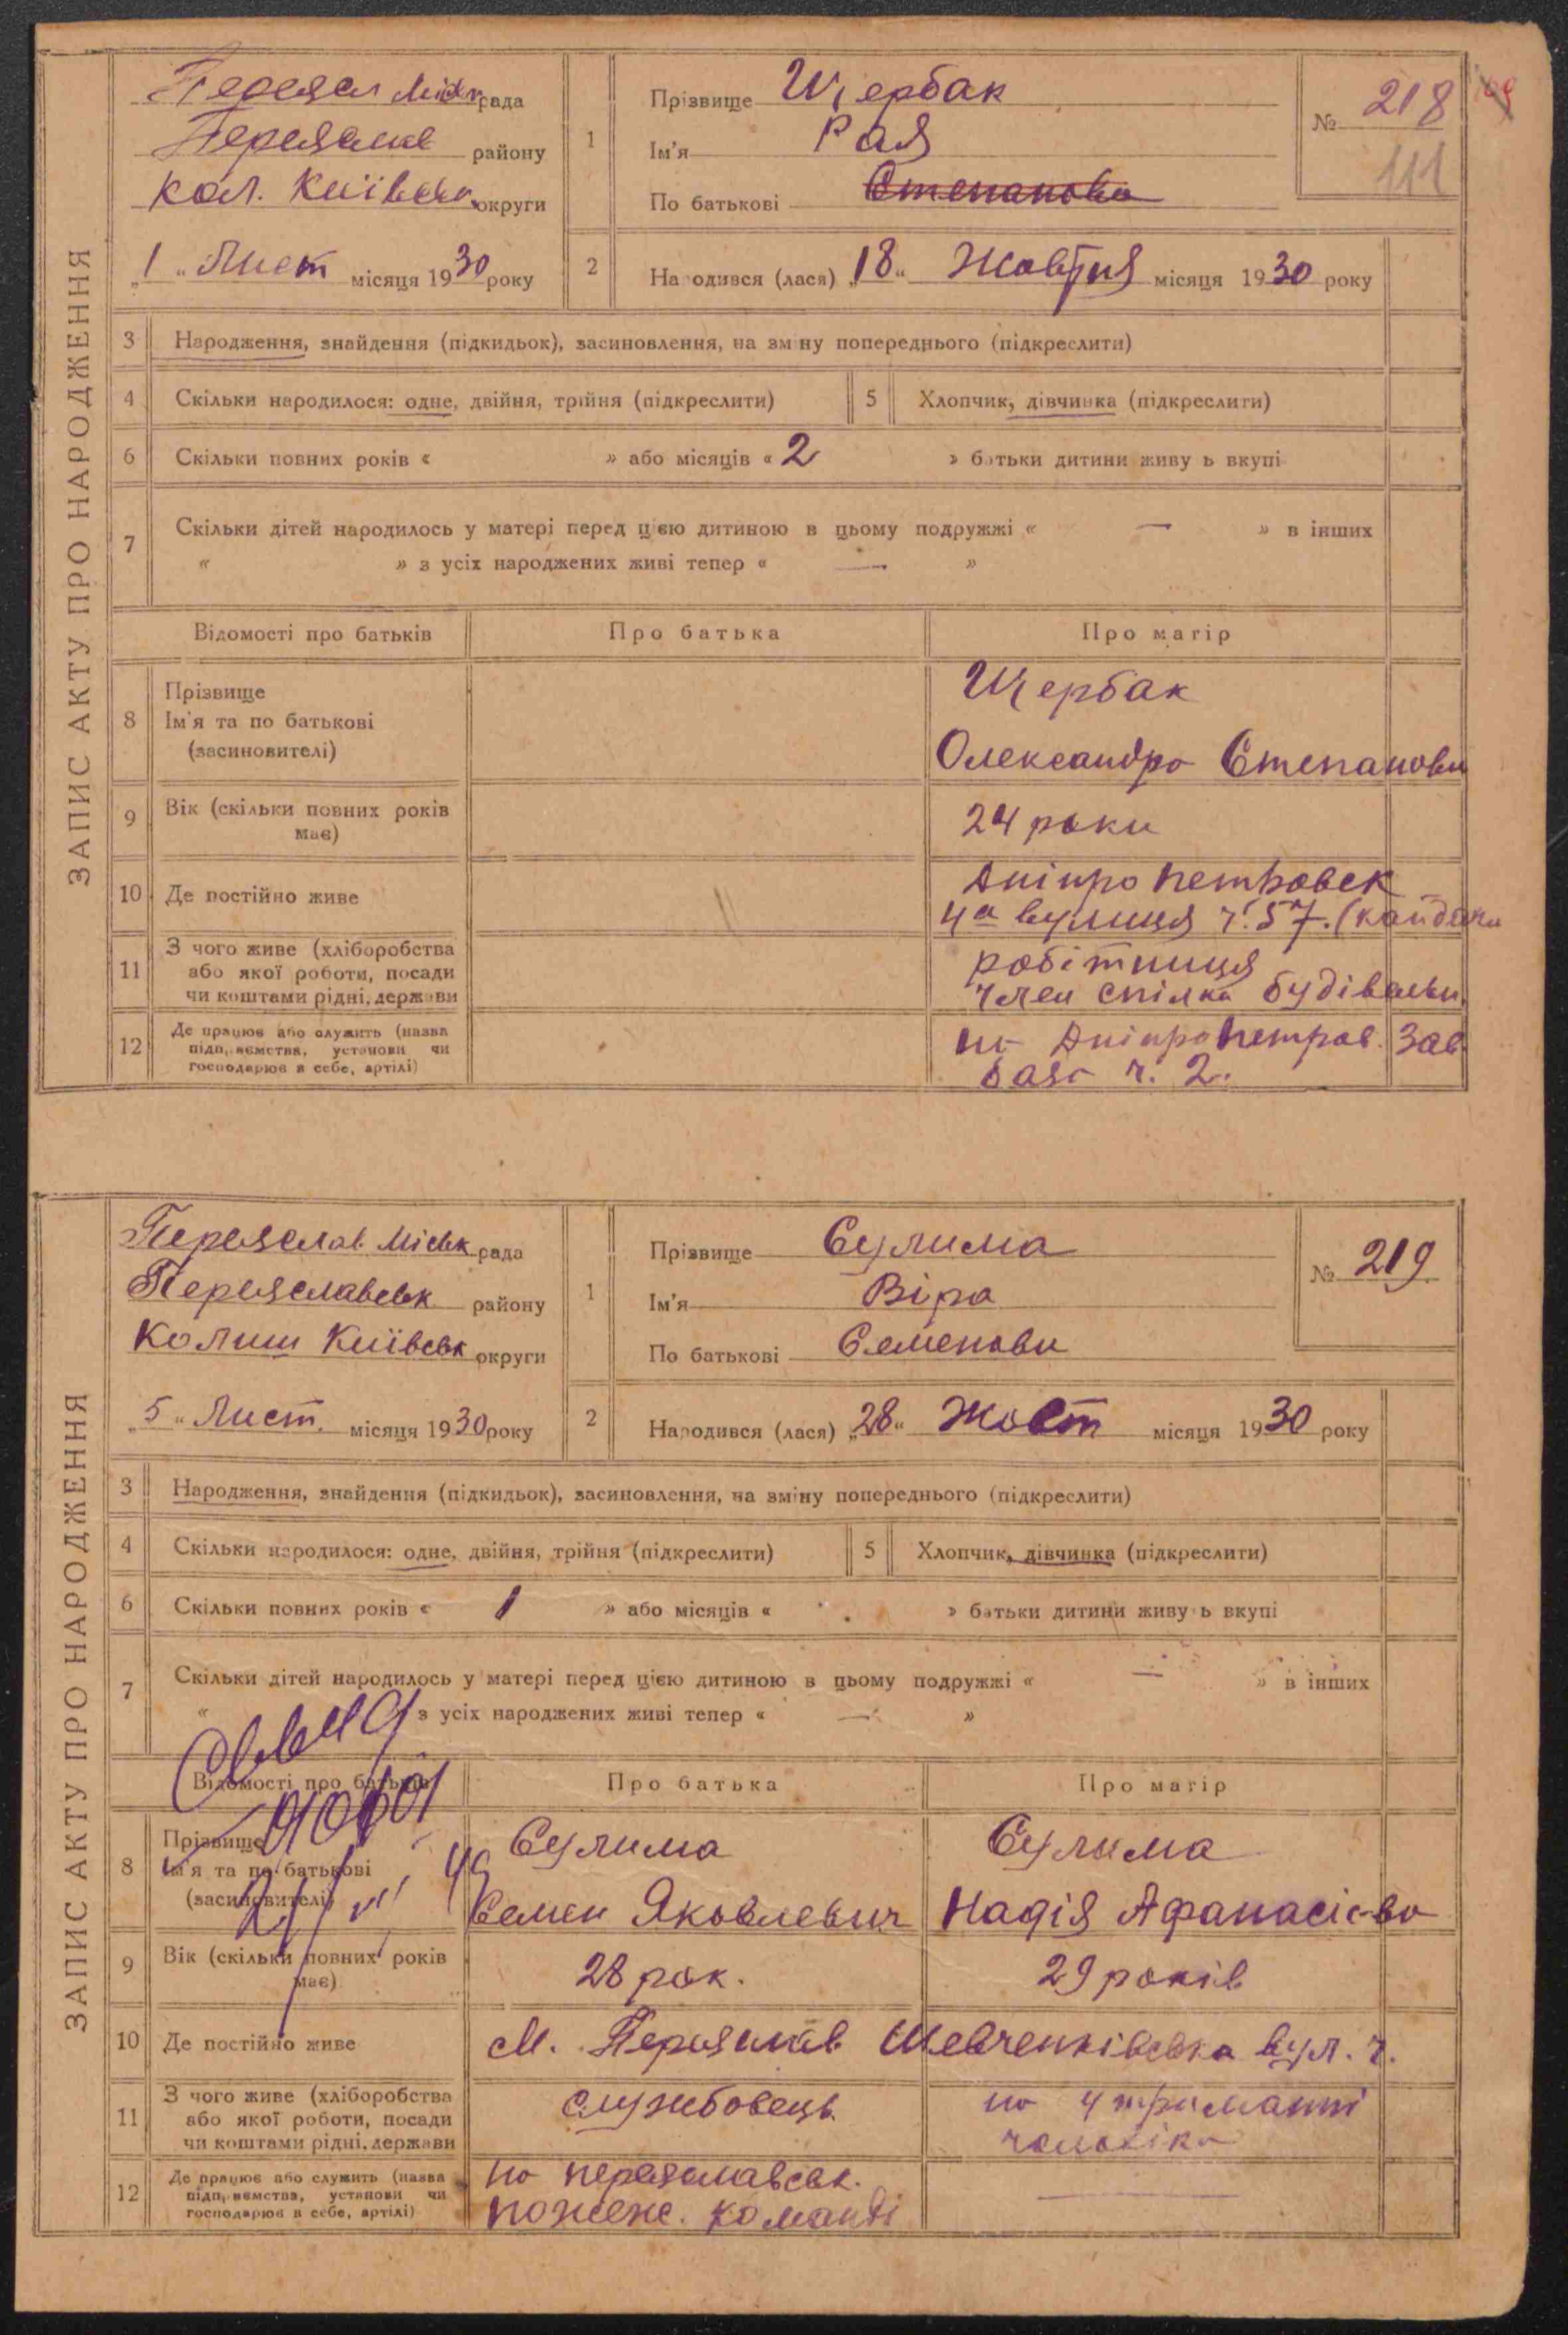 ЗАПИС АКТУ ПРО НАРОДЖЕННЯ
Переясл Міськ рада
Переяслав району
Кол. Київськ округи
„1“ Лист місяця 1930 року
1
Прізвище Щербак
Ім'я Рая
По батькові Степанова
№ 218
111
2 Народився (лася) „18“ Жовтня місяця 1930 року
3 Народження, знайдення (підкидьок), засиновлення, на зміну попереднього (підкреслити)
4 Скільки народилося: одне, двійня, трійня (підкреслити) 5 Хлопчик, дівчинка (підкреслити)
6 Скільки повних років « » або місяців « 2 » батьки дитини живуть вкупі
7 Скільки дітей народилось у матері перед цією дитиною в цьому подружжі « — » в інших
« » з усіх народжених живі тепер « — »
Відомості про батьків Про батька Про матір
8 Прізвище
Ім'я та по батькові
(засиновителі)
Щербак
Олександра Степанови
9 Вік (скільки повних років має)
24 роки
10 Де постійно живе
Дніпропетровск
4а вулиця ч. 57. (Кайдаки
11 З чого живе (хліборобства
або якої роботи, посади
чи коштами рідні, держави
робітниця
член спілка будівельн.
12 Де працює або служить (назва
підприємства, установи чи
господарює в себе, артілі)
на Дніпропетров. Зав.
база ч. 2.
ЗАПИС АКТУ ПРО НАРОДЖЕННЯ
Переяслав Міськ рада
Переяславськ району
Колиш Київськ округи
„5“ Лист. місяця 1930 року
1
Прізвище Сулима
Ім'я Віра
По батькові Семенови
№ 219
2 Народився (лася) „28“ Жовт місяця 1930 року
3 Народження, знайдення (підкидьок), засиновлення, на зміну попереднього (підкреслити)
4 Скільки народилося: одне, двійня, трійня (підкреслити) 5 Хлопчик, дівчинка (підкреслити)
6 Скільки повних років « 1 » або місяців « » батьки дитини живуть вкупі
7 Скільки дітей народилось у матері перед цією дитиною в цьому подружжі « — » в інших
« з усіх народжених живі тепер « — »
Відомості про батьків Про батька Про матір
8 Прізвище
Ім'я та по батькові
(засиновителі)
Сулима
Семен Яковлевич
Сулима
Надія Афанасієва
9 Вік (скільки повних років має)
28 рок.
29 років
10 Де постійно живе
м. Переяслав Шевченківська вул. ч.
11 З чого живе (хліборобства
або якої роботи, посади
чи коштами рідні, держави
службовець
на утриманні
чоловіка
12 Де працює або служить (назва
підприємства, установи чи
господарює в себе, артілі)
на переяславськ.
пожежн. команді